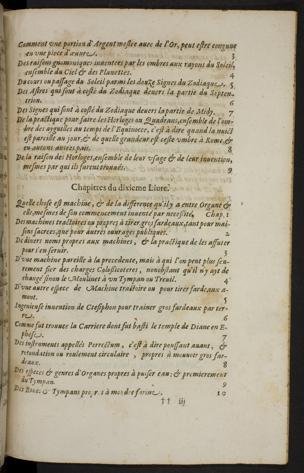 Comment vne portion d'Argent meslee auec de l'Or, peut estre congnue
en vne piece d'œuure. 3
Des raisons gnomoniques inuentees par les ombres aux rayons du Soleil,
ensemble du Ciel & des Planettes. 4
Du cours ou passage du Soleil parmi les douze Signes du Zodiaque. 5
Des Astres qui sont à costé du Zodiaque deuers la partie du Septen-
trion. 6
Des Signes qui sont à costé du Zodiaque deuers la partie de Midy. 7
De la practique pour faire des Horloges ou Quadrans, ensemble de l'om-
bre des ayguilles au temps de l'Equinocce, c'est à dire quand la nuict
est pareille au jour, & de quelle grandeur est ceste vmbre à Rome, &
en autres païs. 8
De la raison des Horloges, ensemble de leur vsage & de leur inuention,
mesmes par qui ils furent trouués. 9
Chapitres du dixieme Liure.
Quelle chose est machine, & de la difference qu'il y a entre Organe &
elle, mesmes de son commencement inuenté par necessité, Chap. 1
Des machines tractoires ou propres à tirer gros fardeaux, tant pour mai-
sons sacrees, que pour autres ouurages publiques. 2
De diuers noms propres aux machines, & la practique de les assurer
pour s'en seruir. 3
D'vne machine pareille à la precedente, mais à qui l'on peut plus seu-
rement fier des charges Colossicoteres, nonobstant qu'il n'y ayt de
change sinon le Moulinet à vn Tympan ou Treuil. 4
D'vne autre espece de Machine tractoire ou pour tirer fardeaux a-
mont. 5
Ingenieuse inuention de Ctesiphon pour trainer gros fardeaux par ter-
re. 6
Comme fut trouuee la Carriere dont fut basti le temple de Diane en E-
phese. 7
Des instrumens appellés Porrectum, c'est à dire poussant auant, &
rotundation ou roulement circulaire, propres à mouuoir gros far-
deaux. 8
Des especes & genres d'Organes propres à puiser eau: & premierement
du Tympan. 9
Des Roues & Tympans propres à moudre farine. 10
†† iij